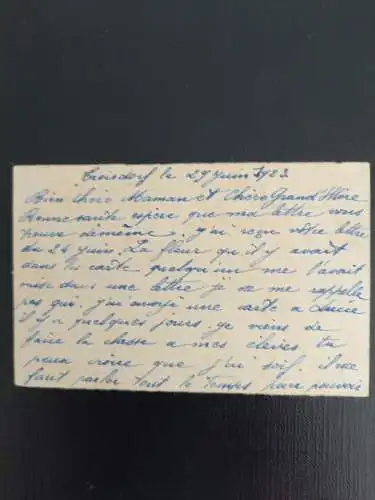 Troisdorf le 29 juin 1923.
Bien Chère Maman et Chère Grand Mère
Bonne santé espère que ma lettre vous
trouve de même. j'ai reçu vôtre lettre
du 24 juin. La fleur qu'il y avait
dans la carte quelqu'un me l'avait
mise dans une lettre je ne me rappelle
pas qui. j'ai envoyé une carte a
il y a quelques jours. je viens de
faire la classe a mes élèves. tu
peux croire que j'ai soif. il me
faut parler tout le temps pour pouvoir